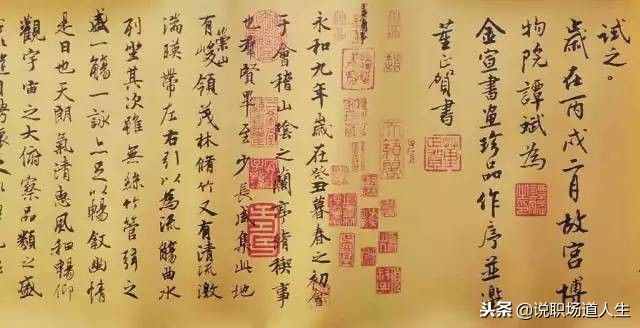 試之。
歲在丙戌二月故宫博
物院譚斌為
金宣書畫珍品作序並邀
董正賀書
永和九年歲在癸丑暮春之初會
于會稽山陰之蘭亭脩禊事
也羣賢畢至少長咸集此地
有崇山峻領茂林脩竹又有清流激
湍暎帶左右引以為流觴曲水
列坐其次雖無絲竹管弦之
盛一觴一詠亦足以暢叙幽情
是日也天朗氣清惠風和暢仰
觀宇宙之大俯察品類之盛
头条 @说职场道人生